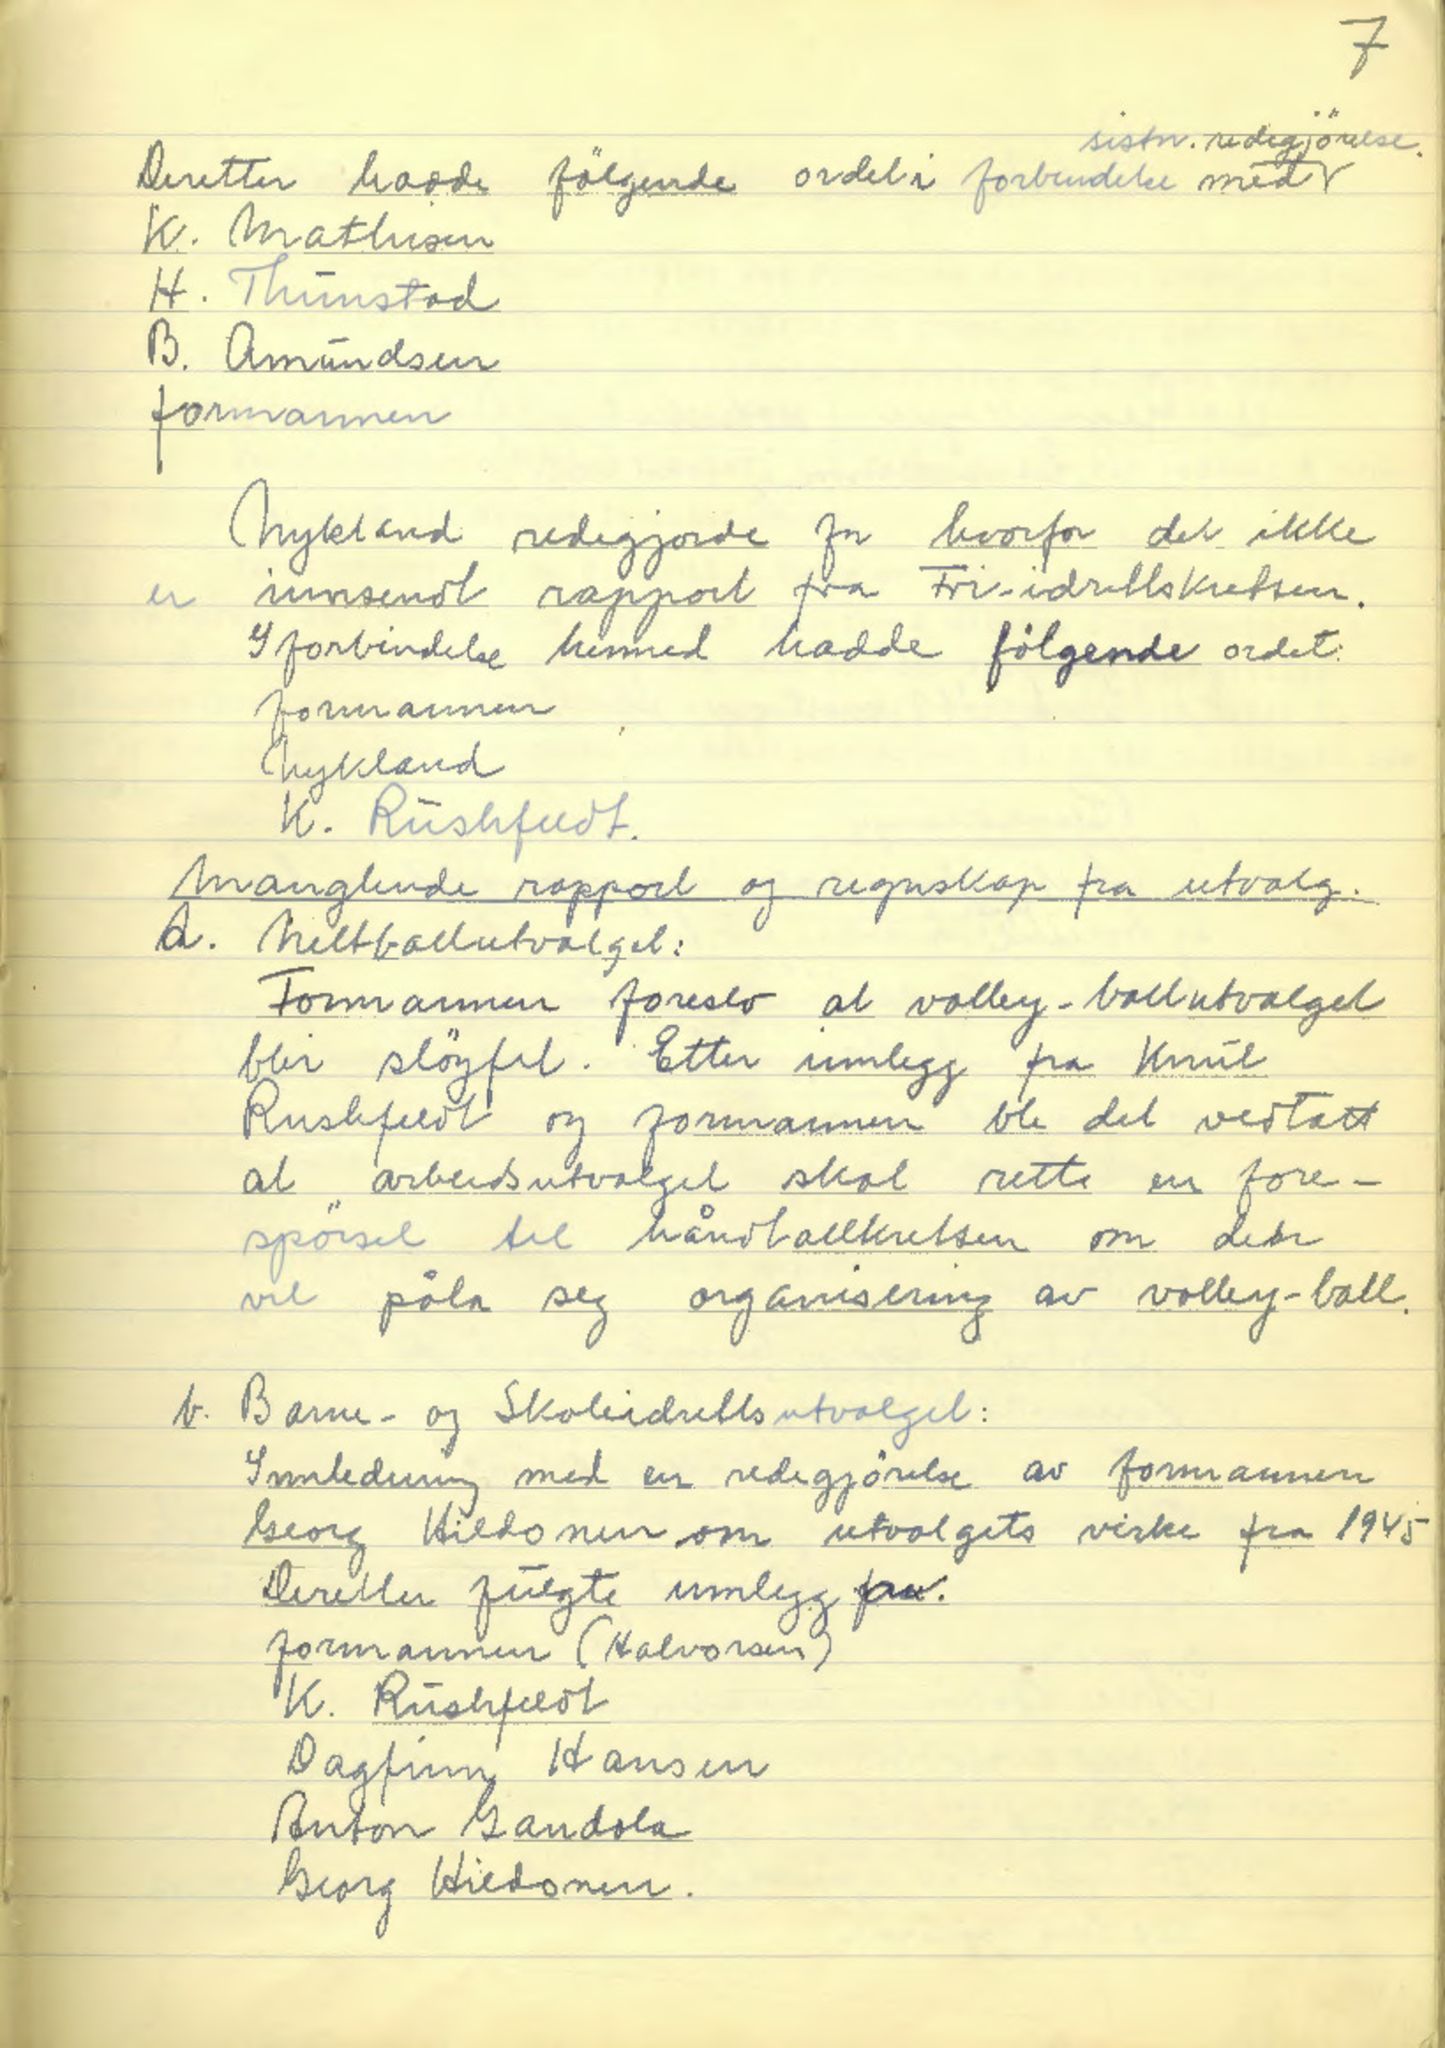 7
sistn. redegjörelse.
Deretter hadde fölgende ordet i forbindelse med
K. Mathisen
H. Thunstad
B. Amundsen
formannen
Nykland redegjorde for hvorfor det ikke
er innsendt rapport fra Fri-idrettskretsen.
I forbindelse hermed hadde fölgende ordet:
formannen
Nykland
K. Rushfeldt.
Manglende rapport og regnskap fra utvalg.
a. Nettballutvalget:
Formannen foreslo at volley-ballutvalget
blir slöyfet. Etter innlegg fra Knut
Rushfeldt og formannen ble det vedtatt
at arbeidsutvalget skal rette en fore-
spörsel til håndballkretsen om den
vil påta seg organisering av volley-ball.
b. Barne- og Skoleidrettsutvalget:
Innledning med en redegjörelse av formannen
Georg Hildonen om utvalgets virke fra 1945
Deretter fulgte innlegg fra.
formannen (Halvorsen)
K. Rushfeldt
Dagfinn Hansen
Anton Gandola
Georg Hildonen.